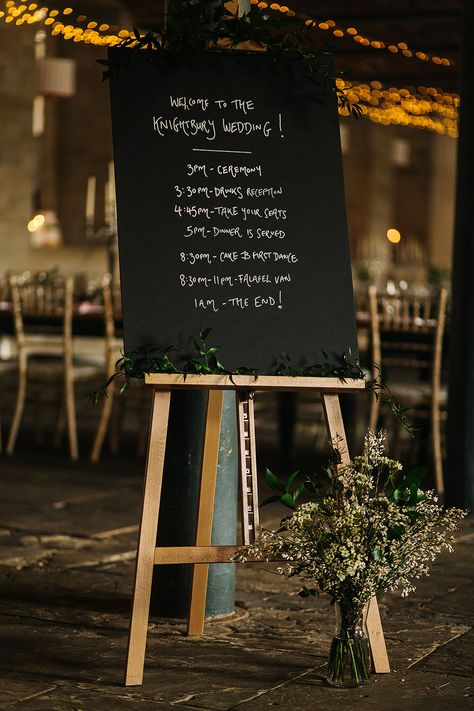 Welcome to the
Knightbury Wedding!
3pm - Ceremony
3:30pm - Drinks Reception
4:45pm - Take your seats
5pm - Dinner is served
8:30pm - Cake & First Dance
8:30pm - 11pm - Falafel Van
1am - The End!